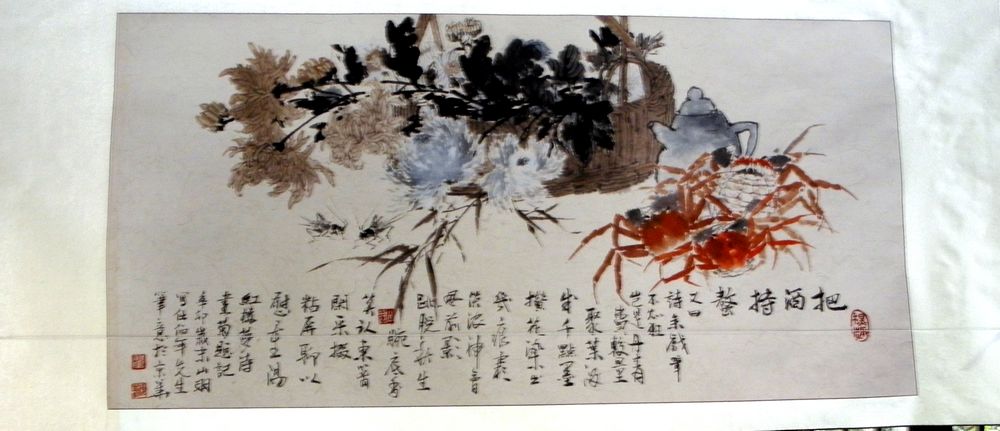 把酒持螯
又曰
詩余戲筆
不知狂
豈是丹青
費較量
聚葉潑
成千點墨
攢花染出
幾痕霜
淡濃神會
風前影
跳脫秋生
腕底香
莫認東籬
閑采掇
粘屏聊以
慰重陽
紅樓夢詩
畫菊題記
辛卯歲末山
寫任伯年先生
筆意於京華